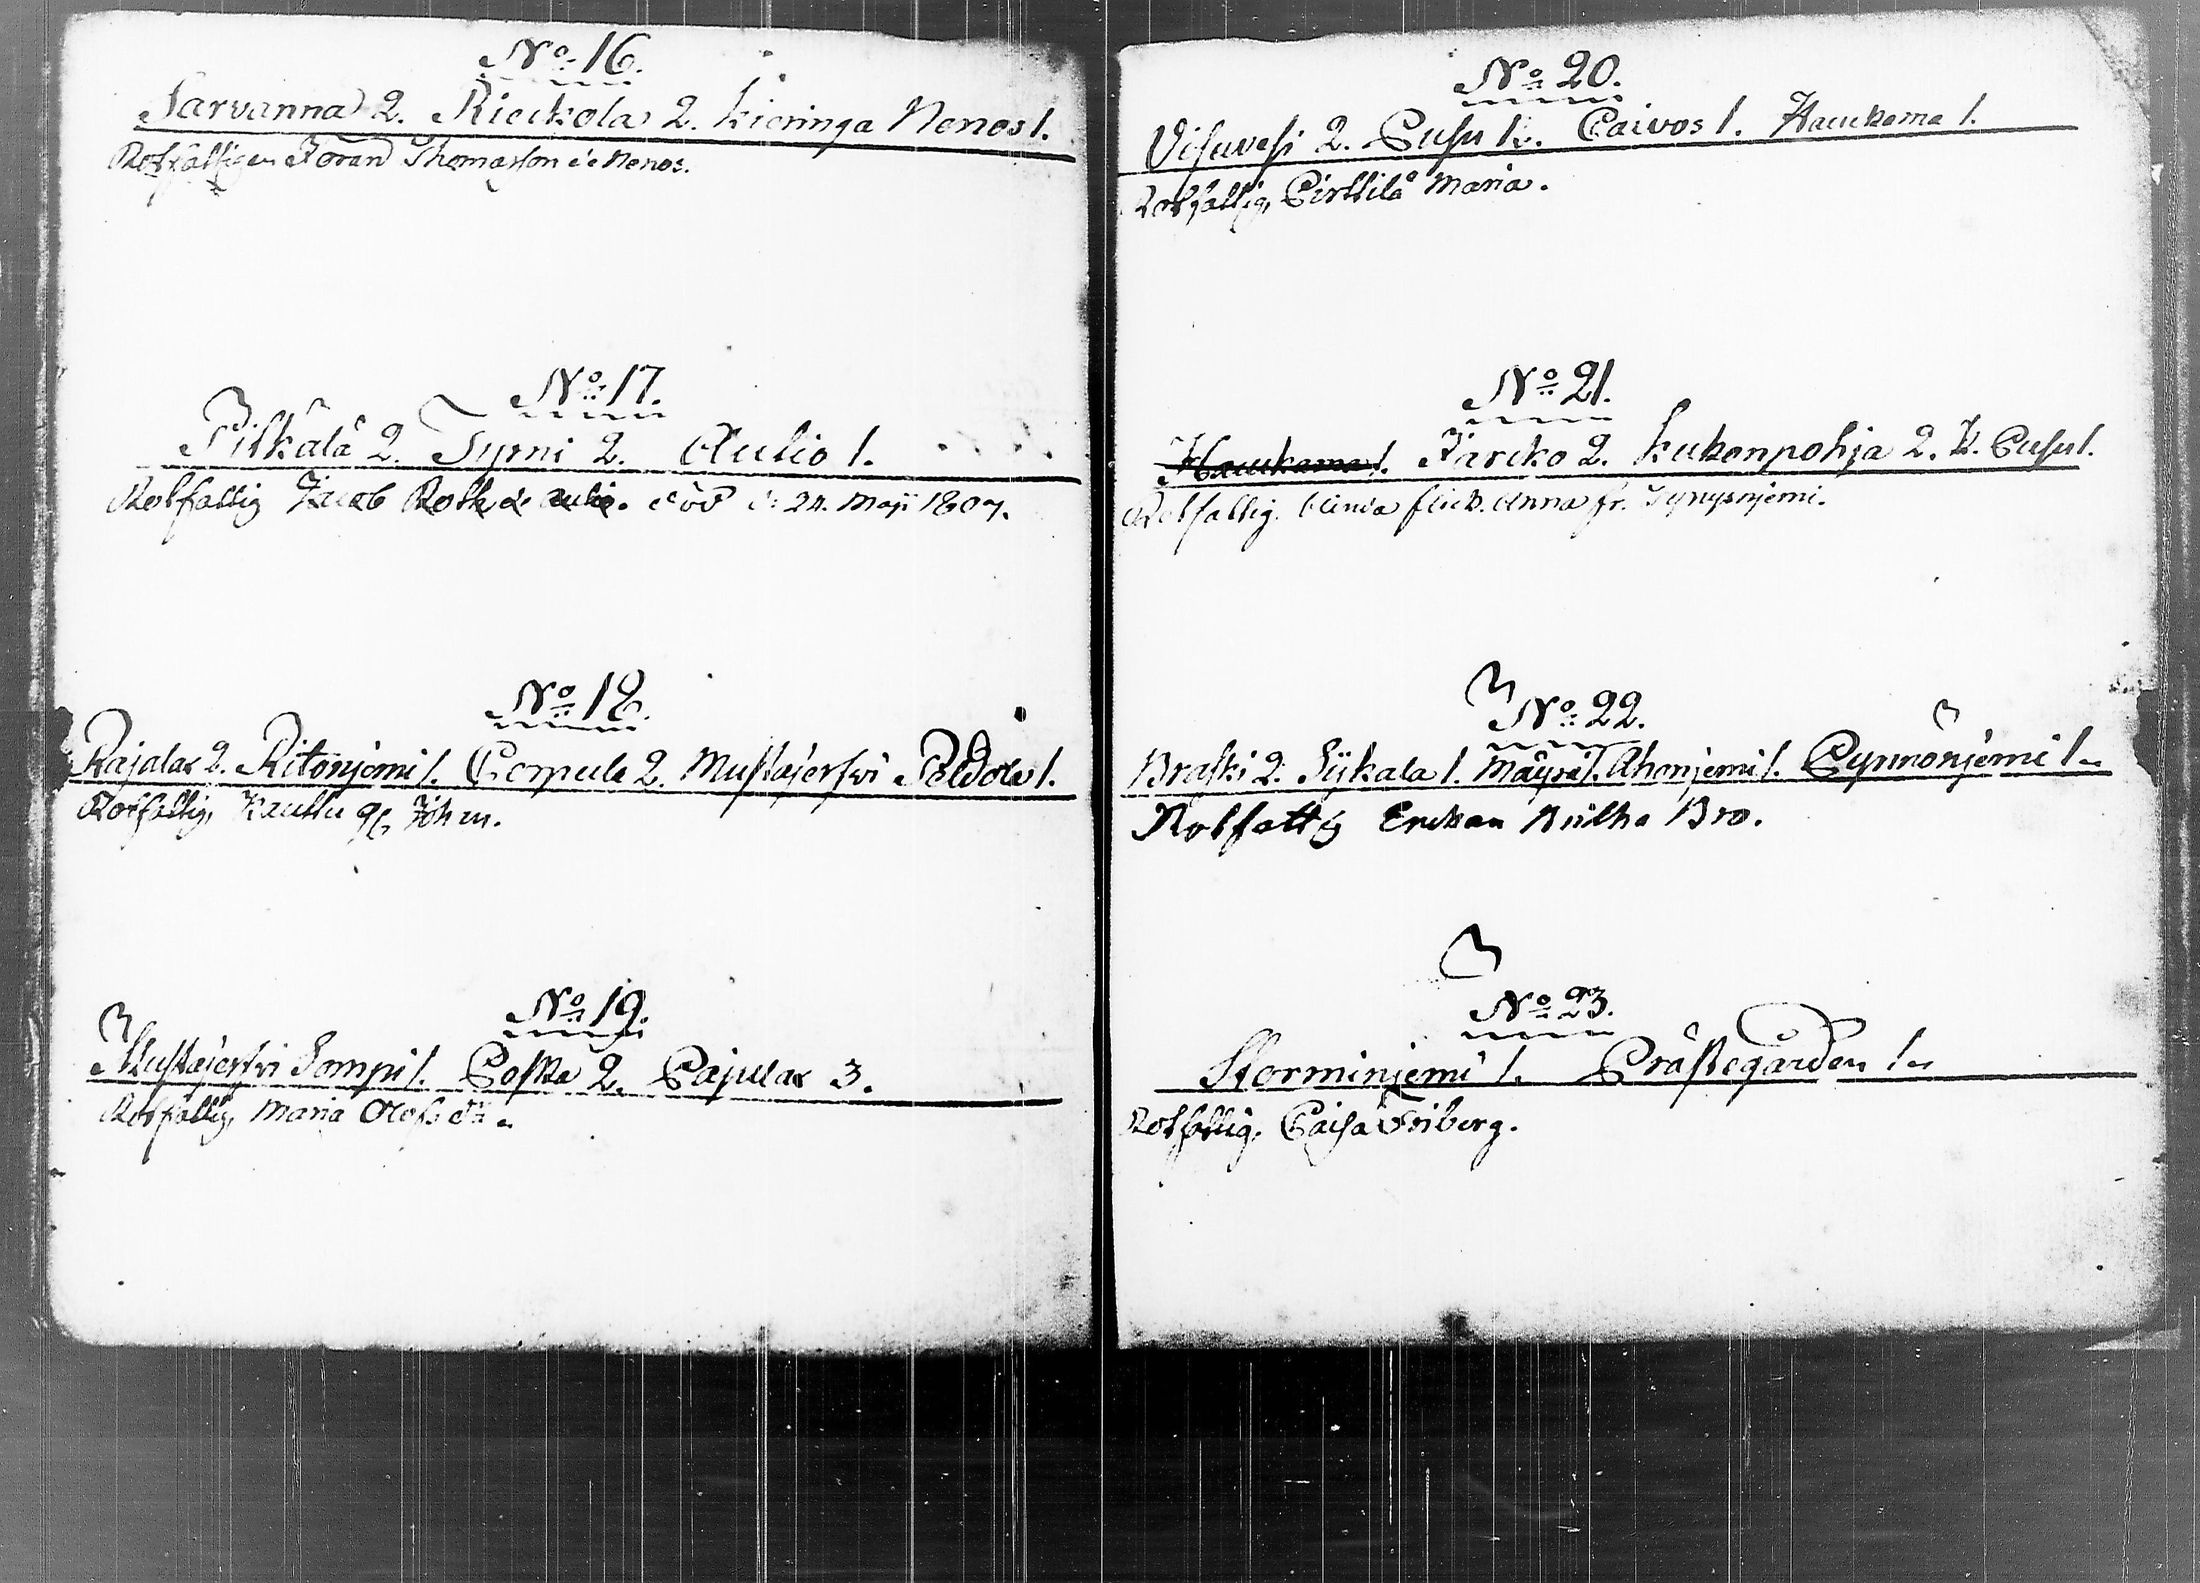 No 16.
Sarvanna 2. Rieckola 2. Kieringa Nenos 1.
Rotfattigen Göran Thomasson i Nenos.
No 17.
Pitkälä 2. Tyrni 2. Aulio 1.
Rotfattig Jacob Roth död d: 24. Maji 1807.
No 18.
Rajalax 2. Ritoniemi 1. Compula 2. Mustajerfvi Peldola 1.
Rotfattig, Kauttu Johan.
No 19.
Mustajerfvi Sompi 1. Poska 2. Pajulax 3.
Rotfattig, Maria Olofs d:r
No 20.
Visuvesi 2. Pusu 1. Paivos 1. Haukama 1.
Rotfattig, Pirttilä Maria.
No 21.
Haukama 1. Järcko 2. Kukonpohja 2. K. Pusu 1.
Rotfattig. blinda flick. Anna fr. Tynysnjemi.
No 22.
Braski 2. Sÿkala 1. Mäyrä 1. Ahonjemi 1. Pynnönjemi 1
Rotfattig Enckan Bro.
No 23.
Storminjemi 1. Prästegården 1
Rotfattig. Caisa Friberg.